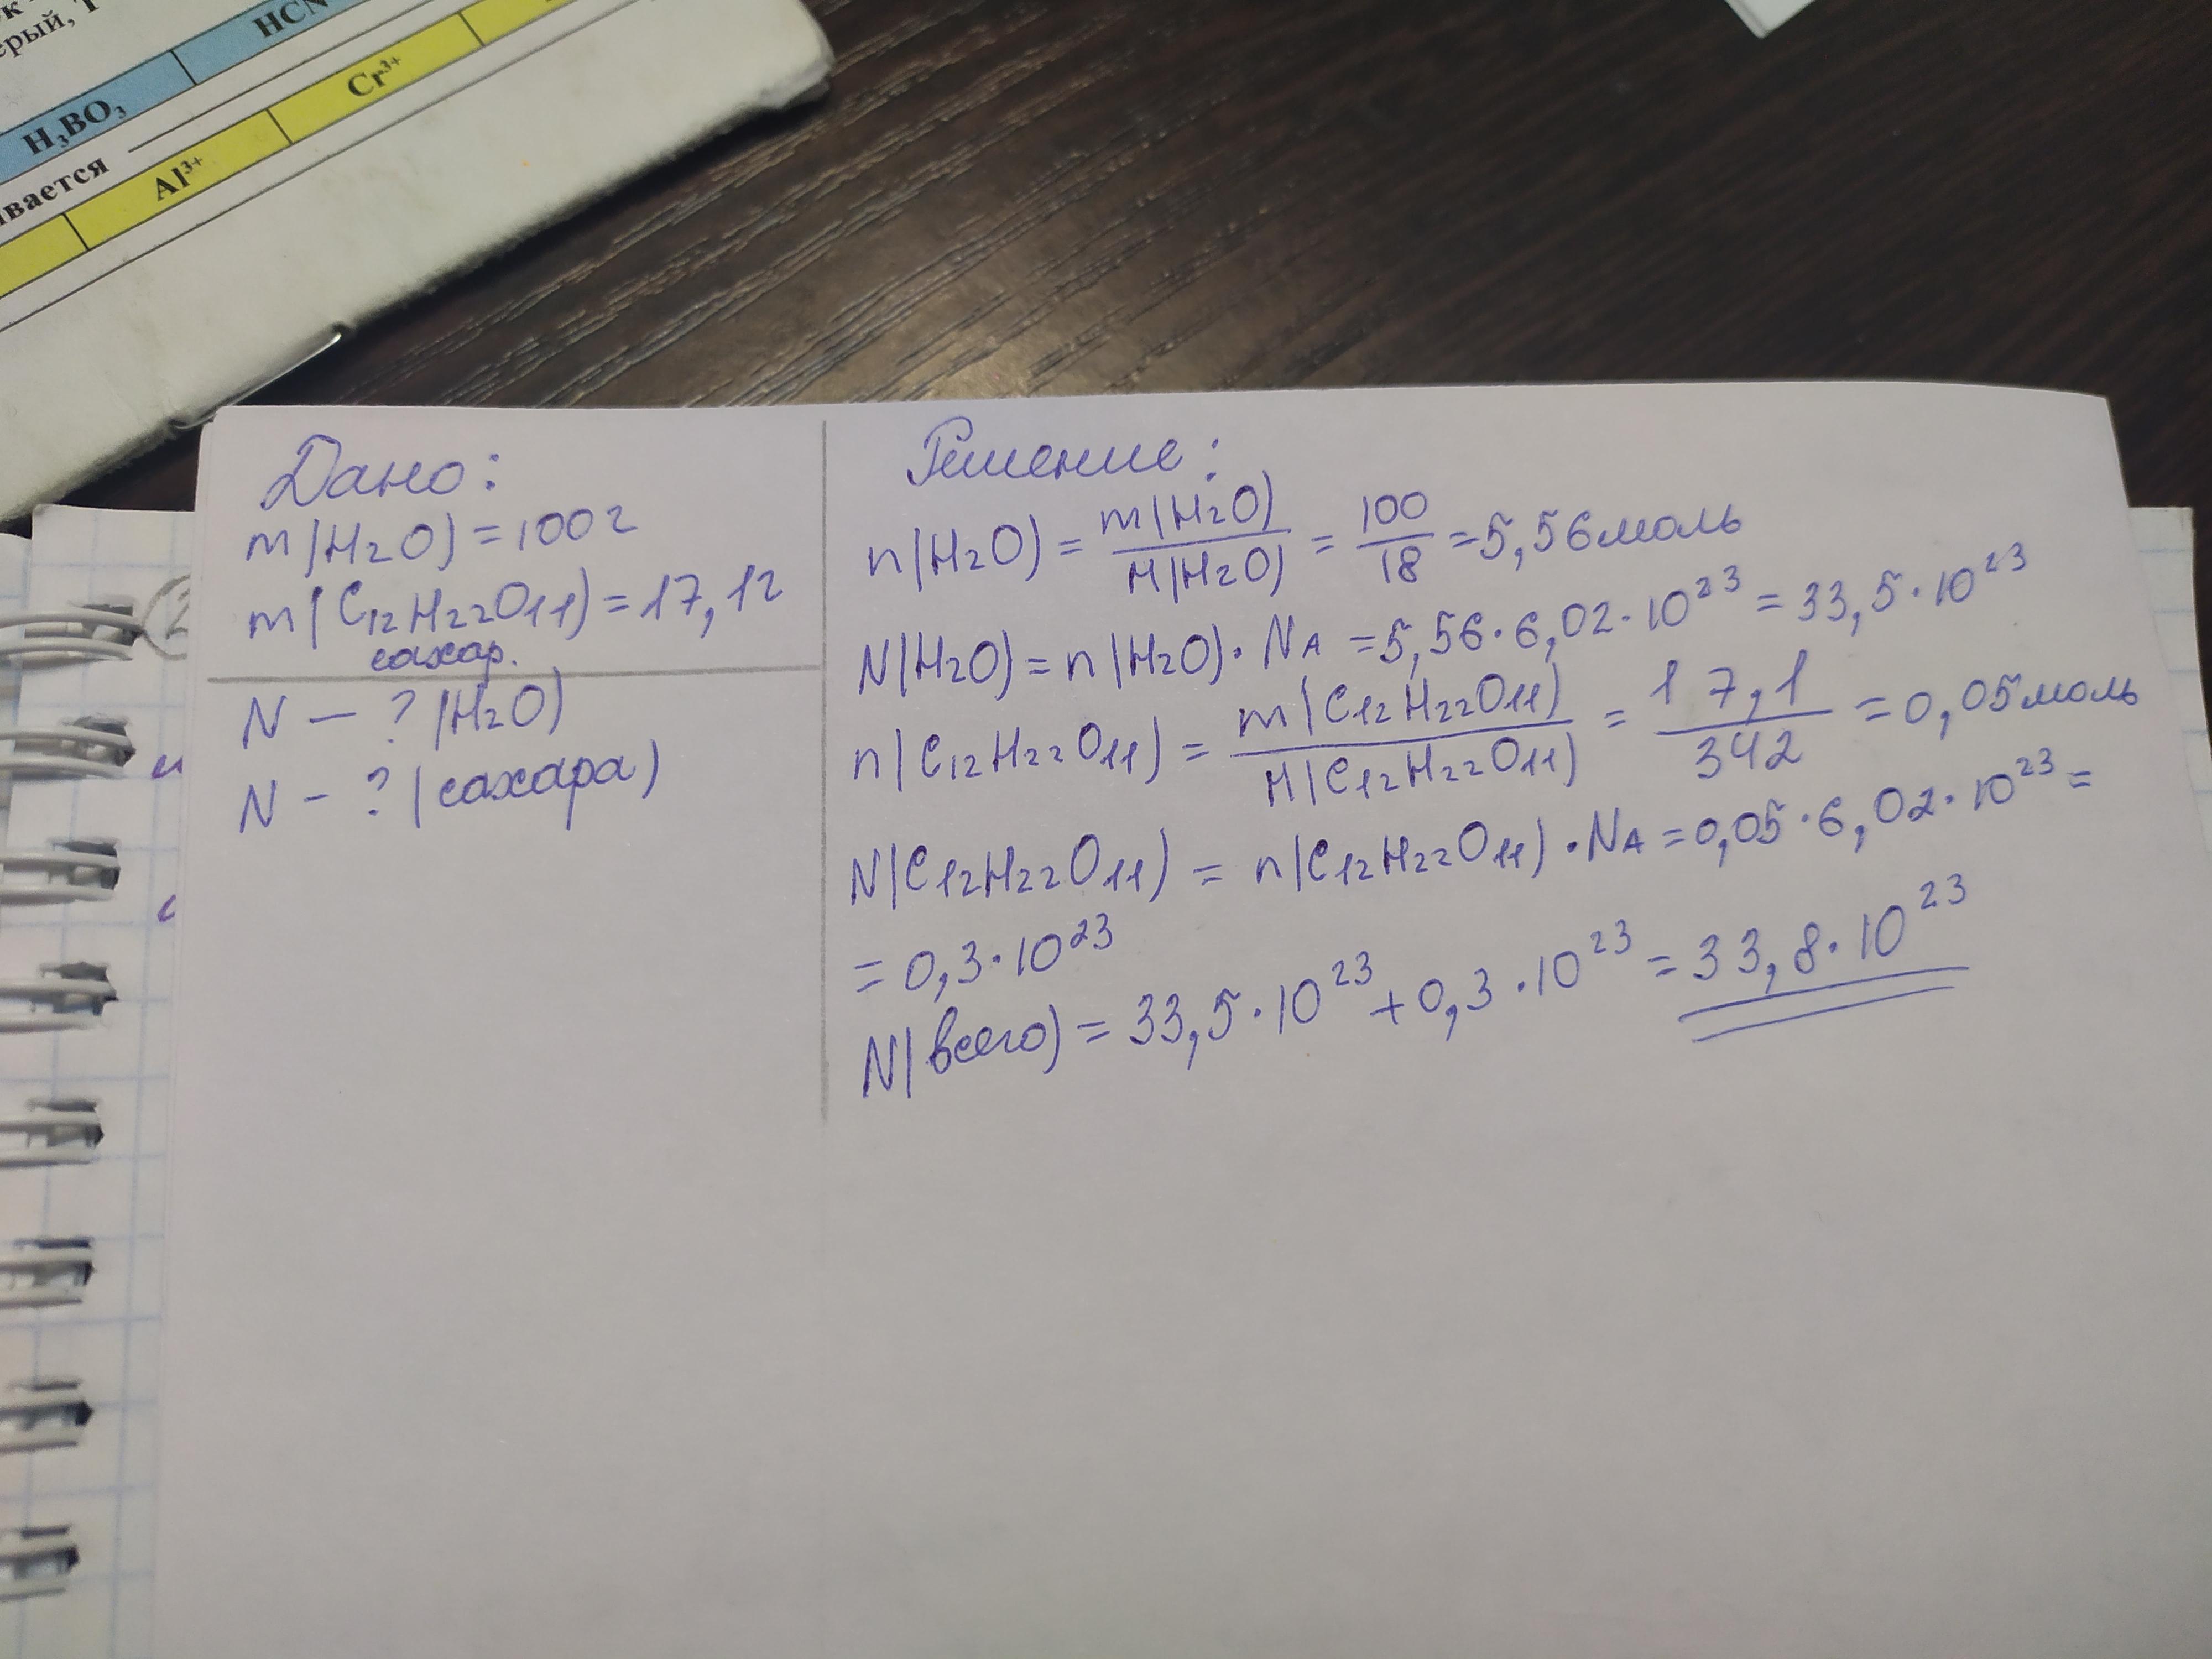 ерый, Т
HCN
H₃BO₃
Cr³⁺
ивается
Al³⁺
Дано:
m(H₂O) = 100г
m(C₁₂H₂₂O₁₁) = 17,1г
сахар.
N — ? (H₂O)
N - ? (сахара)
Решение:
n(H₂O) = m(H₂O)/M(H₂O) = 100/18 = 5,56 моль
N(H₂O) = n(H₂O) · NA = 5,56 · 6,02 · 10²³ = 33,5 · 10²³
n(C₁₂H₂₂O₁₁) = m(C₁₂H₂₂O₁₁)/M(C₁₂H₂₂O₁₁) = 17,1/342 = 0,05 моль
N(C₁₂H₂₂O₁₁) = n(C₁₂H₂₂O₁₁) · NA = 0,05 · 6,02 · 10²³ =
= 0,3 · 10²³
N(всего) = 33,5 · 10²³ + 0,3 · 10²³ = 33,8 · 10²³